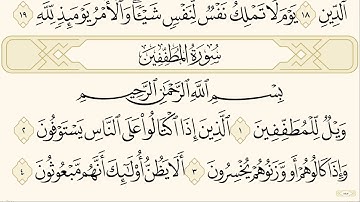 ٱلدِّينِ ١٨ يَوْمَ لَا تَمْلِكُ نَفْسٌ لِّنَفْسٍ شَيْـًٔا ۖ وَٱلْأَمْرُ يَوْمَئِذٍ لِّلَّهِ ١٩
سُورَةُ المُطَفِّفِينَ
بِسْمِ ٱللَّهِ ٱلرَّحْمَٰنِ ٱلرَّحِيمِ
وَيْلٌ لِّلْمُطَفِّفِينَ ١ ٱلَّذِينَ إِذَا ٱكْتَالُوا۟ عَلَى ٱلنَّاسِ يَسْتَوْفُونَ ٢
وَإِذَا كَالُوهُمْ أَو وَّزَنُوهُمْ يُخْسِرُونَ ٣ أَلَا يَظُنُّ أُو۟لَٰٓئِكَ أَنَّهُم مَّبْعُوثُونَ ٤